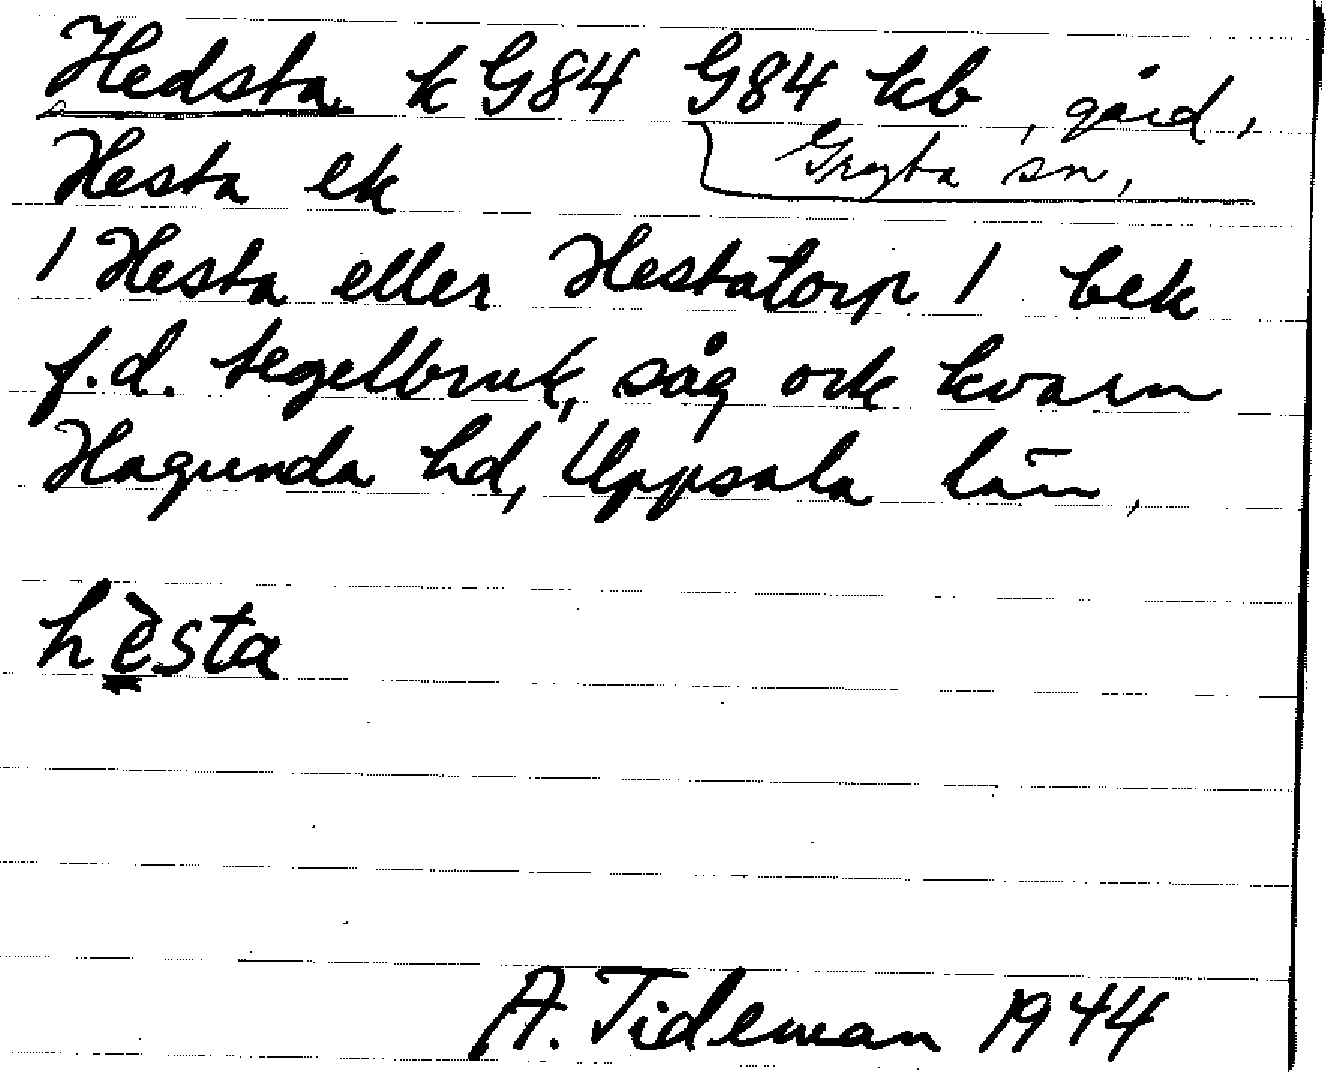 Hedsta k G84 G84 kb, gård,
Gryta sn,
Hesta ek
/ Hesta eller Hestatorp / bek
f.d. tegelbruk, såg och kvarn
Hagunda hd, Uppsala län,
hèsta
A. Tideman 1944